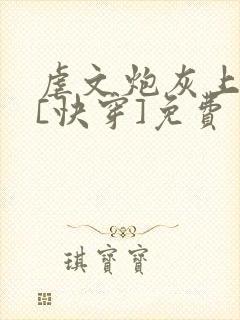 虐文炮灰上
[快穿]免費
琪寶寶